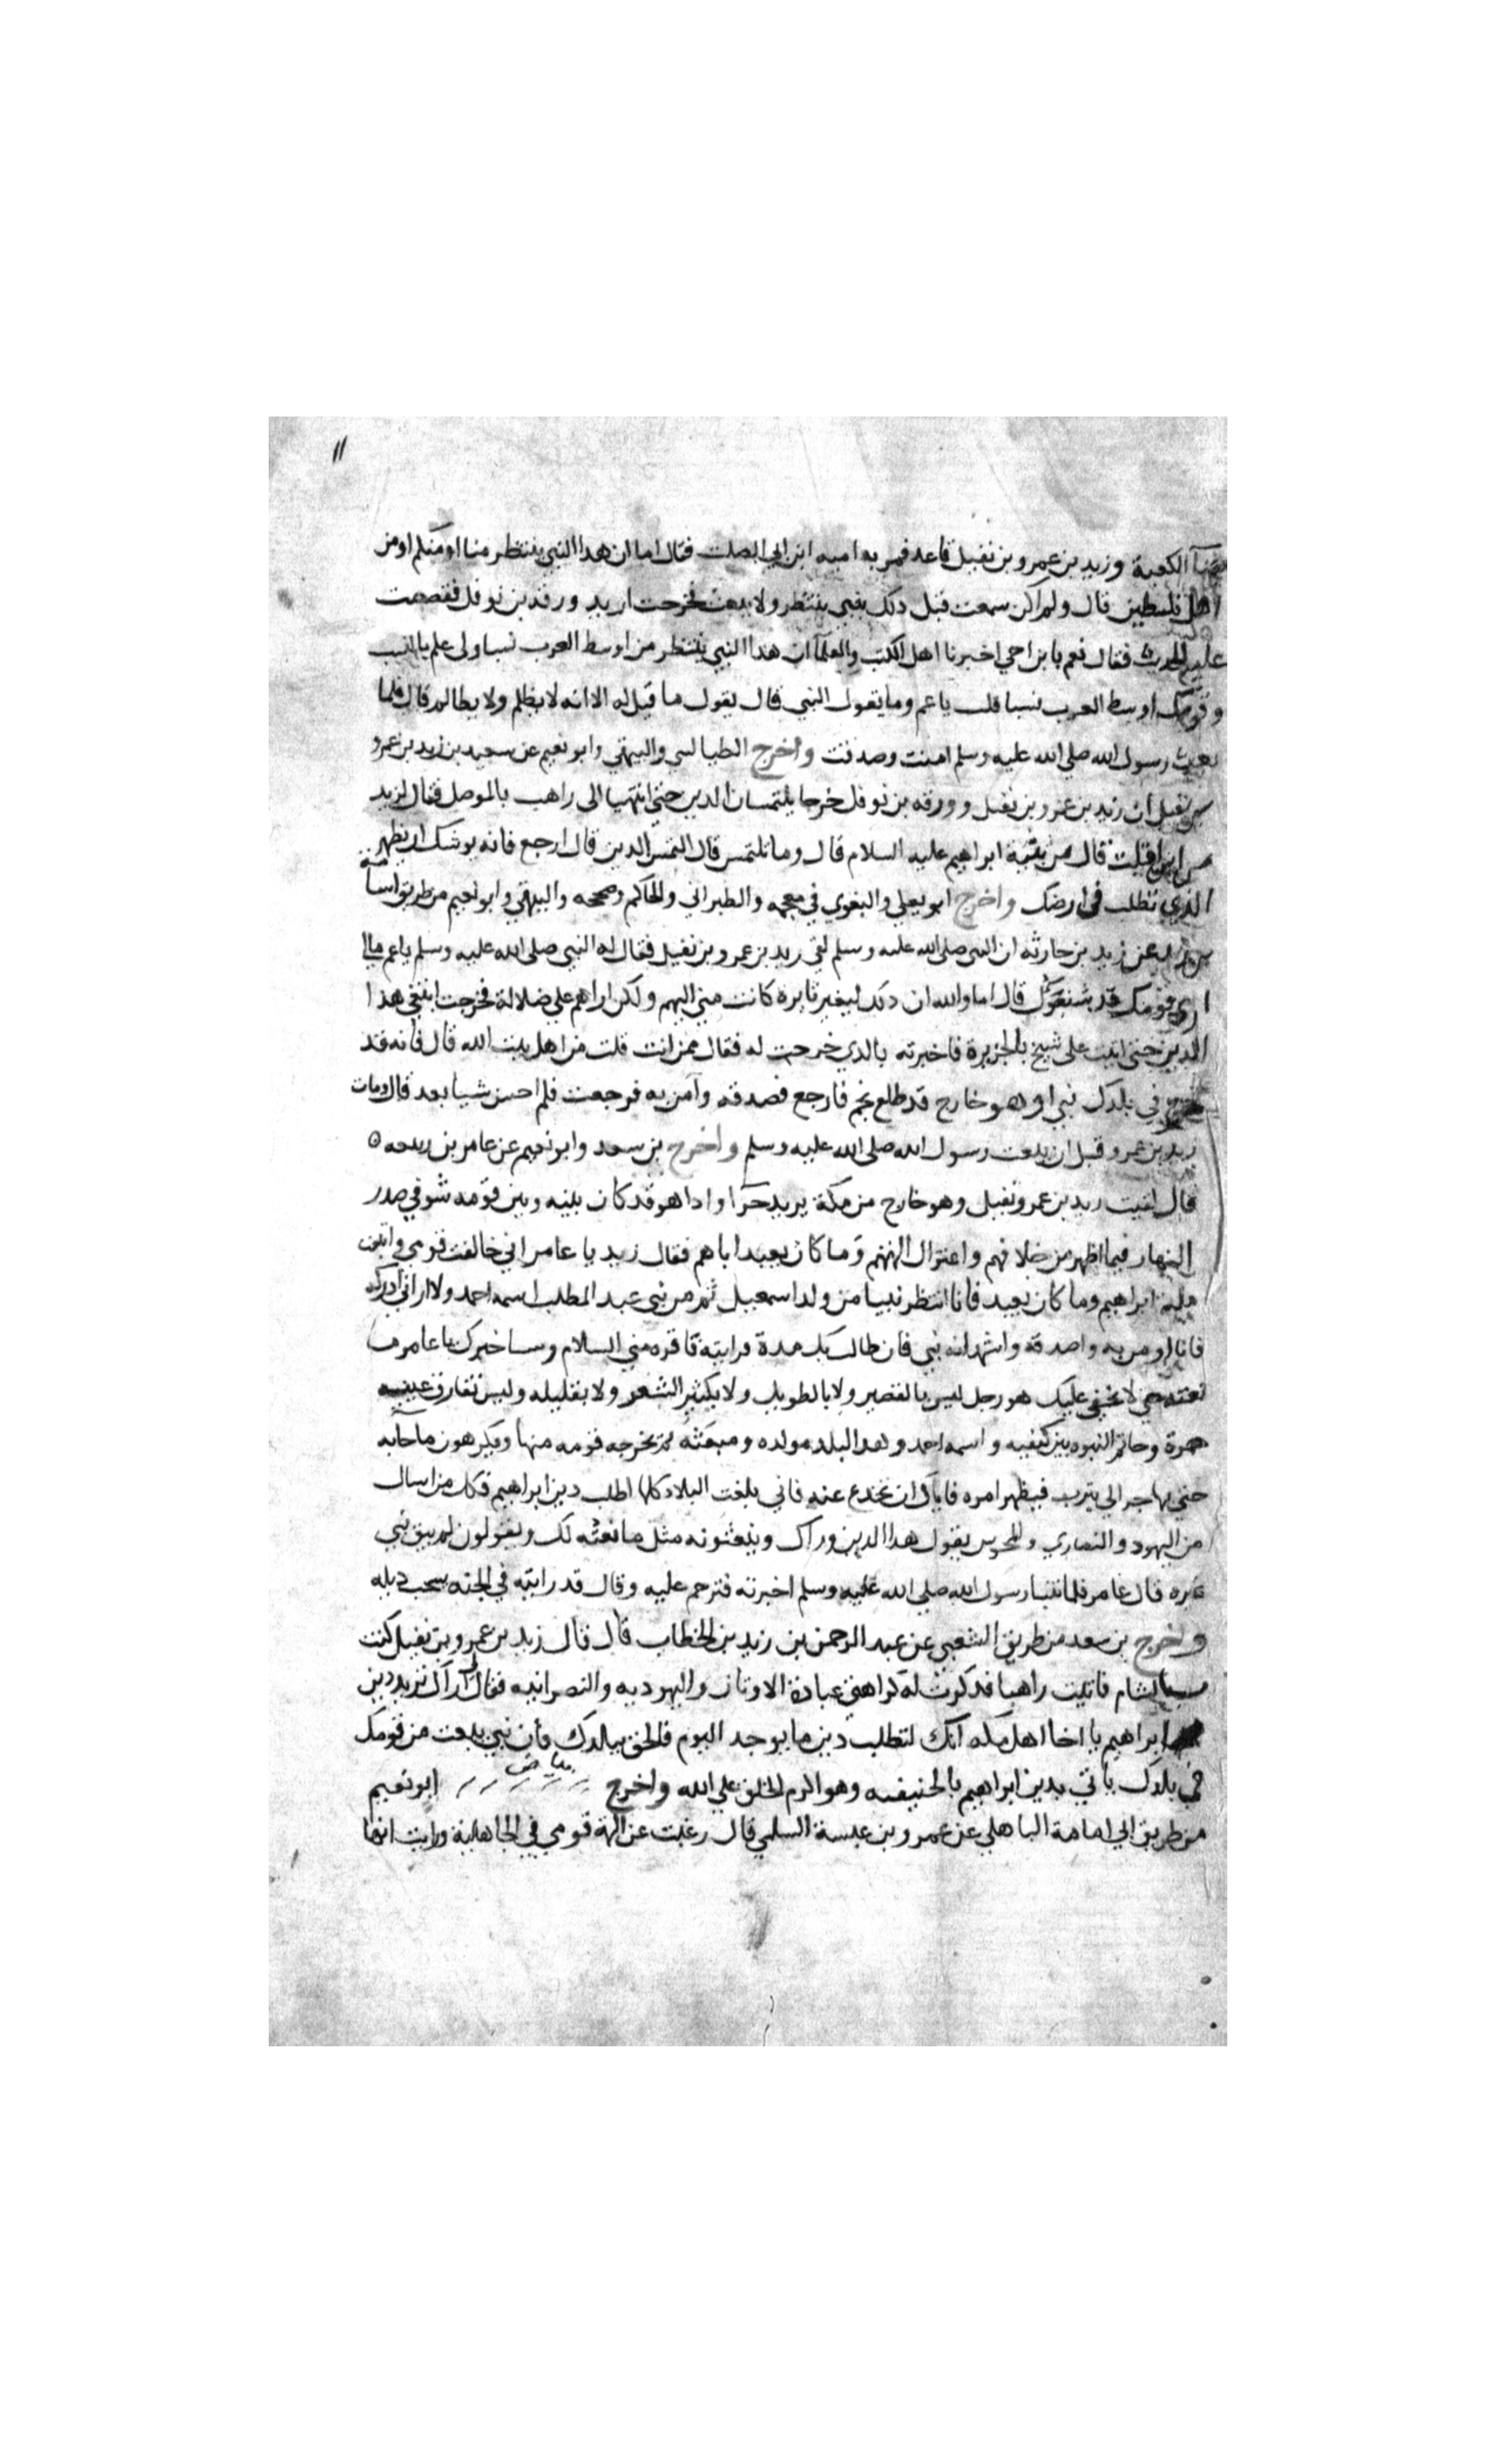 ١١
بفنآ الكعبة وزيد بن عمرو بن نفيل قاعد فمر به اميه ابن ابي الصلت فقال اما ان هدا النبي ينتظر منا او منكم او من
اهل فلسطين قال ولم اكن سمعت قبل دلك بنبي ينتظر ولا يبعث فخرجت اريد ورقه بن نوفل فقصصت
عليه الحديث فقال نعم يا بن اخي اخبرنا اهل الكتب والعلمآ ان هدا النبي ينتظر من اوسط العرب نسبا ولي علم بالنسب
وقومك اوسط العرب نسبا قلت يا عم وما يقول النبي قال يقول ما قيل له الا انه لا يظلم ولا يظالم قال فلما
بعث رسول الله صلى الله عليه وسلم امنت وصدقت واخرج الطيالسي والبيهقي وابو نعيم عن سعيد بن زيد بن عمرو
بن نفيل ان زيد بن عمرو بن نفيل وورقه بن نوفل خرجا يلتمسان الدين حتى انتهيا الى راهب بالموصل فقال لزيد
من اين اقبلت قال من بنية ابراهيم عليه السلام قال وما تلتمس قال التمس الدين قال ارجع فانه يوشك ان يظهر
الذي تطلب في ارضك واخرج ابو يعلي والبغوي في معجمه والطبراني والحاكم وصححه والبيهقي وابو نعيم من طريق اسامة
بن زيد عن زيد بن حارثه ان النبي صلى الله عليه وسلم لقي زيد بن عمرو بن نفيل فقال له النبي صلى الله عليه وسلم يا عم مالي
اري قومك قد شنفوك قال اما والله ان دلك لبغير نايرة كانت مني اليهم ولكن اراهم علي ضلالة فخرجت ابتغي هدا
الدين حتى اتيت على شيخ بالجزيرة فاخبرته بالدي خرجت له فقال ممن انت قلت من اهل بيت الله قال فانه قد
خرج في بلدك نبي او هو خارج قد طلع نجم فارجع فصدقه وآمن به فرجعت فلم احسن شيا بعد قال ومات
زيد بن عمرو قبل ان يبعث رسول الله صلى الله عليه وسلم واخرج بن سعد وابو نعيم عن عامر بن ربيعه
قال لقيت زيد بن عمرو نفيل وهو خارج من مكة يريد حرآ وادا هو قد كان بينه وبين قومه شو في صدر
النهار فيما اظهر من خلافهم واعتزال الهتهم وما كان يعبد اباهم فقال زيد يا عامر اني خالفت قومي واتبعت
ملة ابراهيم وما كان يعبد فانا انتظر نبيا من ولد اسمعيل ثم من بني عبد المطلب اسمه احمد ولا اراني ادركه
فانا اومن به واصدقه واشهد انه نبي فان طالت بك مدة فرايته فاقره مني السلام وساخبرك يا عامر ما
نعته حتى لا يخفى عليك هو رجل ليس بالقصير ولا بالطويل ولا بكثير الشعر ولا بقليله وليس تفارق عينيه
حمرة وخاتم النبوه بين كتفيه واسمه احمد وهدا البلد مولده ومبعثه ثم يخرجه قومه منها ويكرهون ما جآبه
حتى يهاجر الي يثرب فيظهر امره فاياك ان تخدع عنه فاني بلغت البلاد كلها اطلب دين ابراهيم فكل من اسال
من اليهود والنصاري والمجوس يقول هدا الدين وراك وينعتونه مثل ما نعته لك ويقولون لم يبق نبي
غيره قال عامر فلما تنبا رسول الله صلى الله عليه وسلم اخبرته فترحم عليه وقال قد رايته في الجنه يسحب ديله
واخرج بن سعد من طريق الشعبي عن عبد الرحمن بن زيد بن الخطاب قال قال زيد بن عمرو بن نفيل كنت
بالشام فاتيت راهبا فدكرت له كراهتي عبادة الاوتان واليهوديه والنصرانيه فقال لي اراك تريد دين
ابراهيم يا اخا اهل مكه انك لتطلب دين ما يوجد اليوم فالحق ببلدك فان نبي يبعث من قومك
في بلدك ياتي بدين ابراهيم بالحنيفيه وهو اكرم الخلق علي الله واخرج بياض ابو نعيم
من طريق ابي امامة الباهلي عن عمرو بن عبسة السلمي قال رغبت عن الهة قومي في الجاهلية ورايت انها